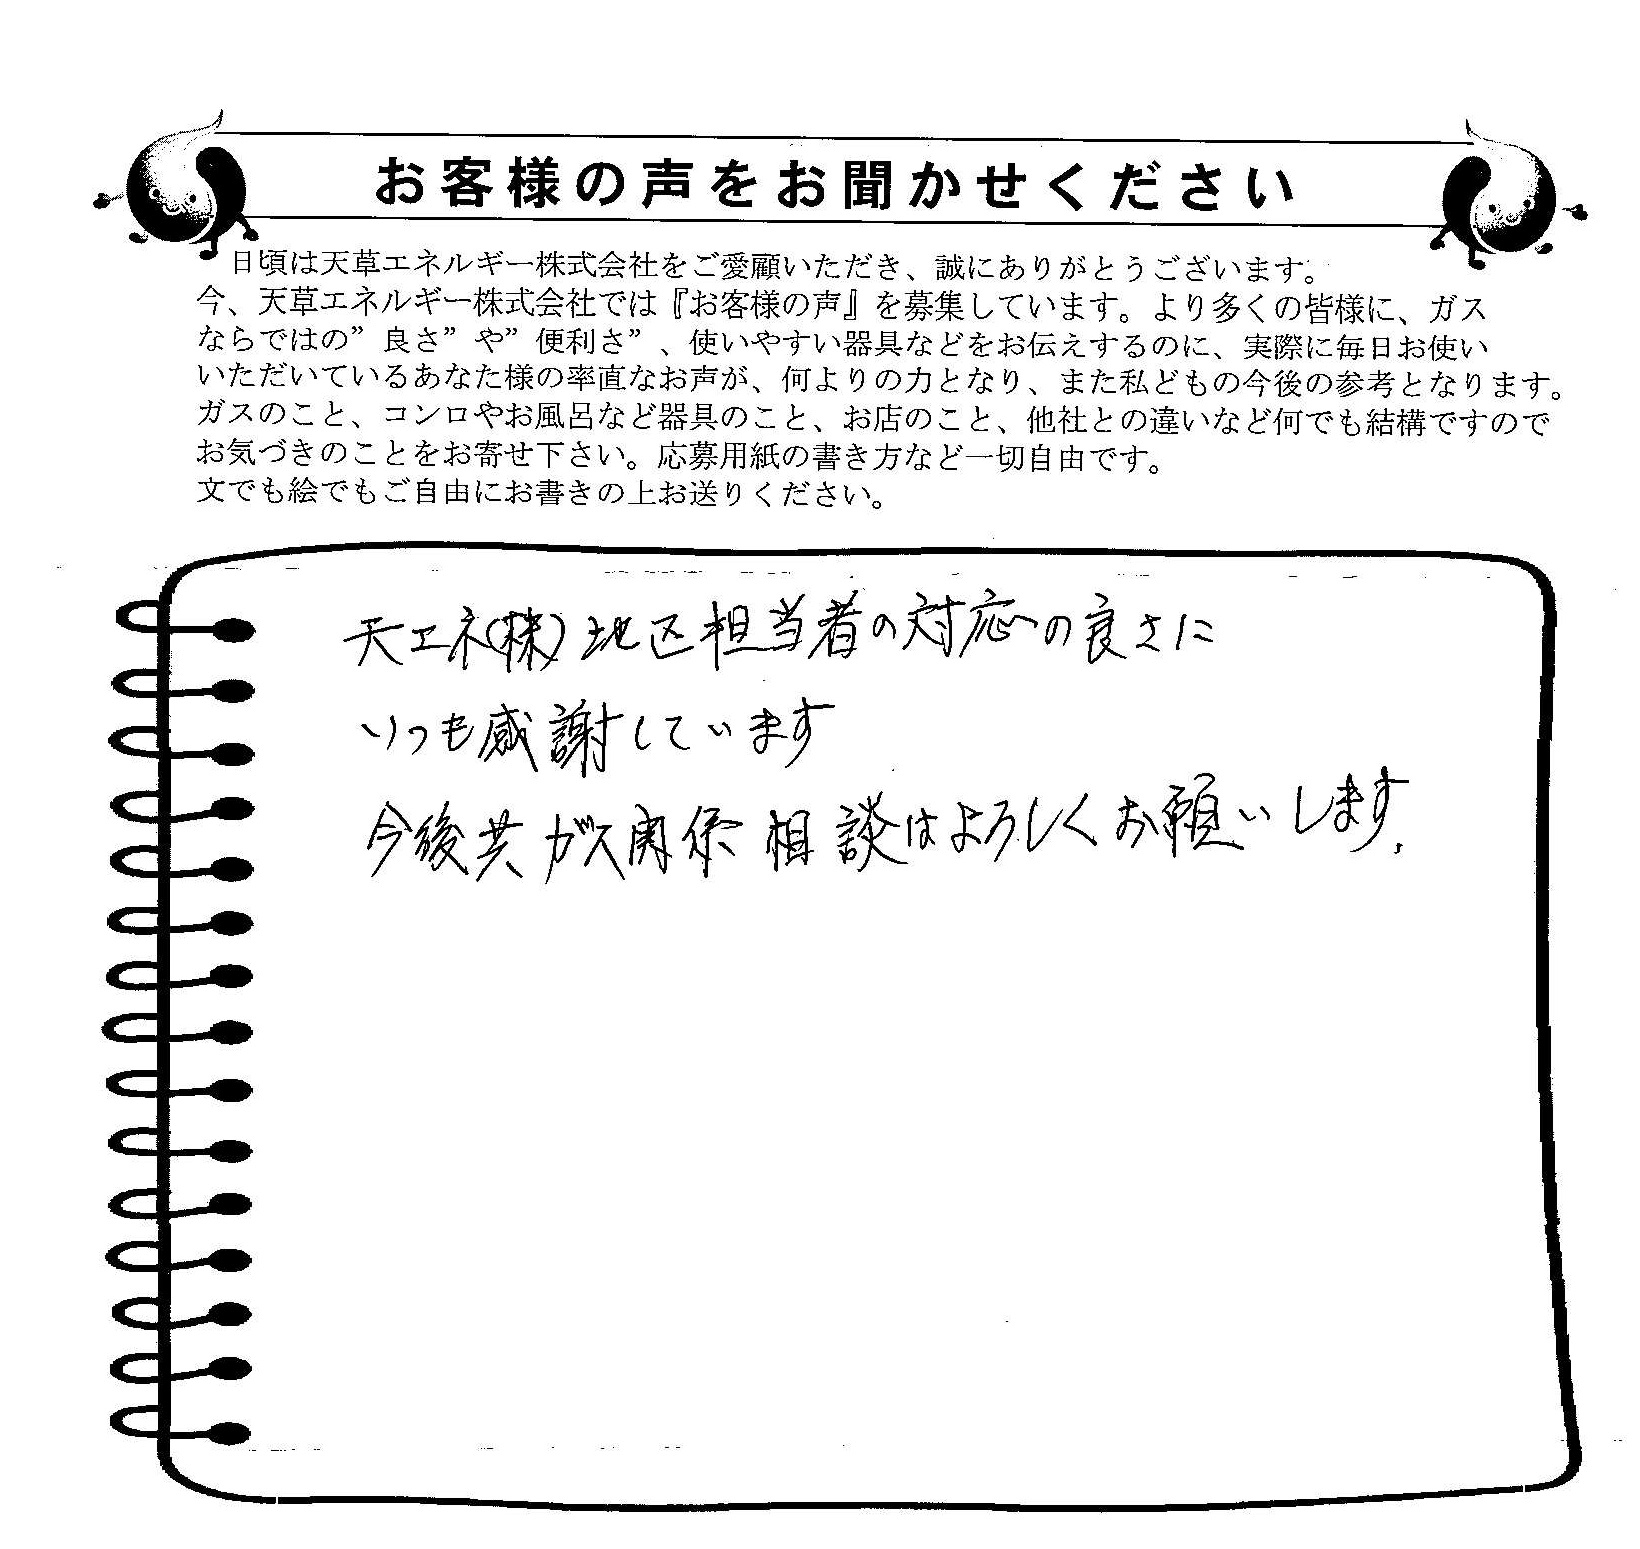 お客様の声をお聞かせください
日頃は天草エネルギー株式会社をご愛顧いただき、誠にありがとうございます。
今、天草エネルギー株式会社では『お客様の声』を募集しています。より多くの皆様に、ガス
ならではの”良さ”や”便利さ”、使いやすい器具などをお伝えするのに、実際に毎日お使い
いただいているあなた様の率直なお声が、何よりの力となり、また私どもの今後の参考となります。
ガスのこと、コンロやお風呂など器具のこと、お店のこと、他社との違いなど何でも結構ですので
お気づきのことをお寄せ下さい。応募用紙の書き方など一切自由です。
文でも絵でもご自由にお書きの上お送りください。
天エネ(株)地区担当者の対応の良さに
いつも感謝しています
今後共ガス関係相談はよろしくお願いします.